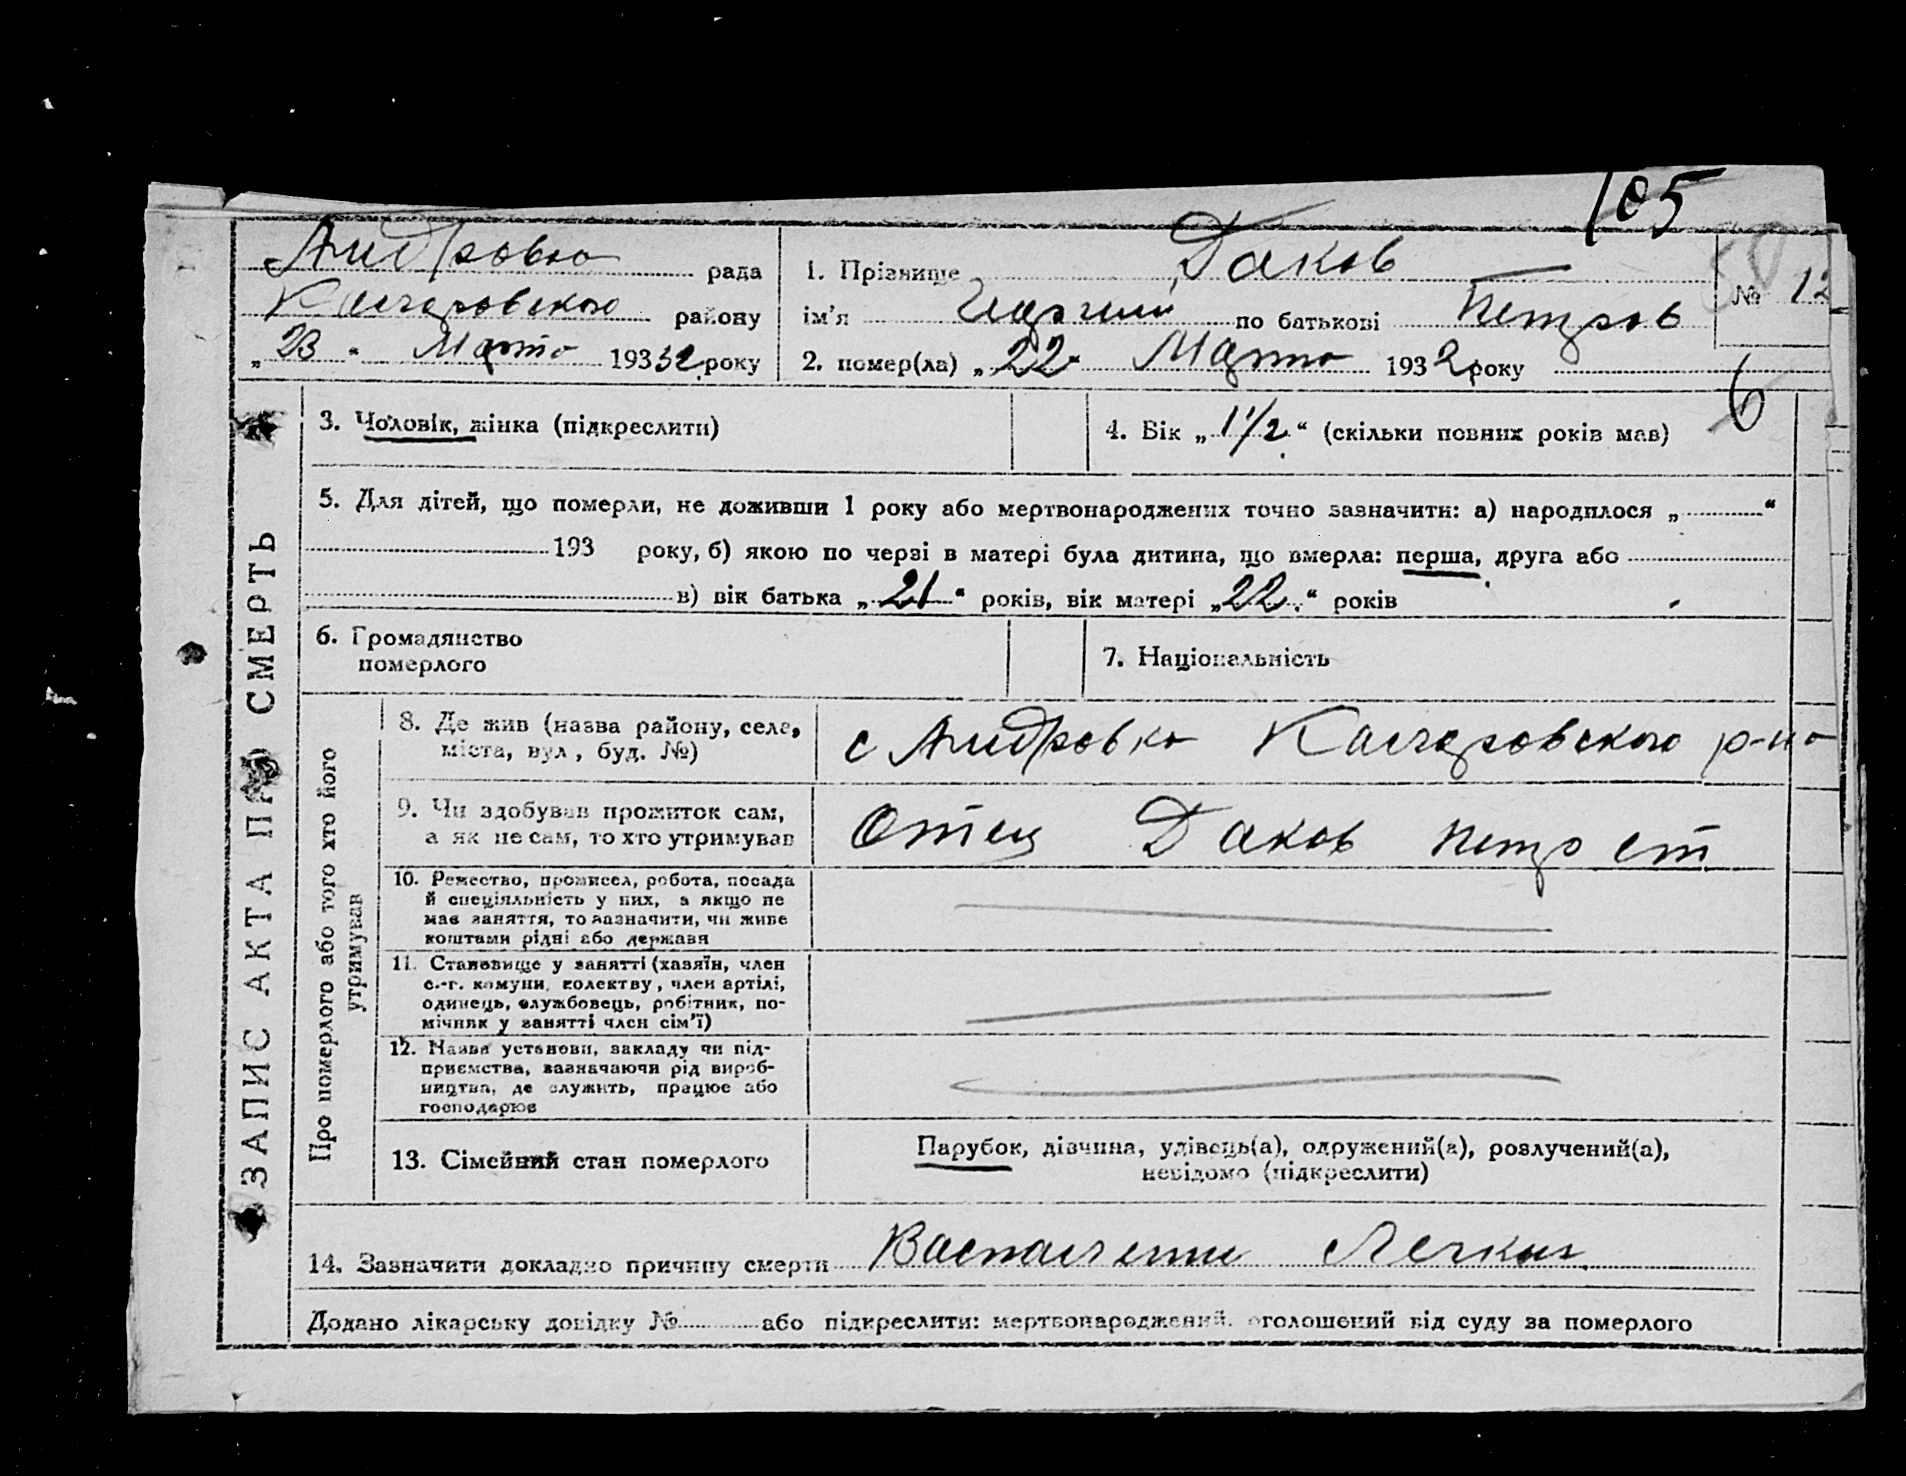 105
Андровка рада
Каларовского району
„23“ Марта 19332 року
1. Прізвище Даков
ім’я Георгий по батькові Петров
№ 12
2. помер(ла) „22“ Марта 1932 року
6
ЗАПИС АКТА ПРО СМЕРТЬ
3. Чоловік, жінка (підкреслити)
4. Вік „1 1/2“ (скільки повних років мав)
5. Для дітей, що померли, не доживши 1 року або мертвонароджених точно зазначити: а) народилося „ “
193 року, б) якою по черзі в матері була дитина, що вмерла: перша, друга або
в) вік батька „21“ років, вік матері „22“ років
6. Громадянство
померлого
7. Національність
Про померлого або того хто його
утримував
8. Де жив (назва району, села,
міста, вул., буд. №)
с Андровка Каларовского р-на
9. Чи здобував прожиток сам,
а як не сам, то хто утримував
Отец Даков Петр
10. Ремество, промисел, робота, посада
й спеціяльність у них, а якщо не
має заняття, то зазначити, чи живе
коштами рідні або держави
11. Становище у занятті (хазяїн, член
с.-г. комуни, колективу, член артілі,
одинець, службовець, робітник, по-
мічник у занятті член сім’ї)
12. Назва установи, закладу чи під-
приємства, зазначаючи рід вироб-
ництва, де служить, працює або
господарює
13. Сімейний стан померлого
Парубок, дівчина, удівець(а), одружений(а), розлучений(а),
невідомо (підкреслити)
14. Зазначити докладно причину смерти Васпаление Легких
Додано лікарську довідку № або підкреслити: мертвонароджений, оголошений від суду за померлого